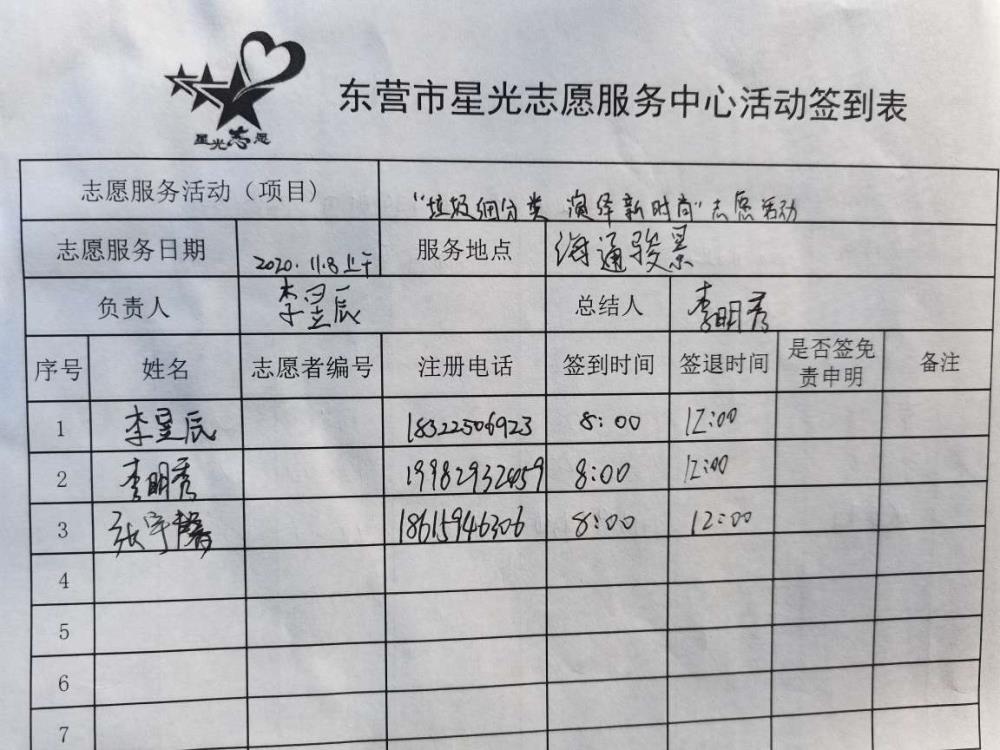 星光志愿
东营市星光志愿服务中心活动签到表
志愿服务活动（项目） “垃圾细分类 演绎新时尚”志愿活动
志愿服务日期 2020.11.8上午 服务地点 海通骏景
负责人 李昱辰 总结人 李明秀
序号 姓名 志愿者编号 注册电话 签到时间 签退时间 是否签免责申明 备注
1 李昱辰 18322506923 8:00 12:00
2 李明秀 19982932459 8:00 12:00
3 张宇馨 18615946306 8:00 12:00
4
5
6
7